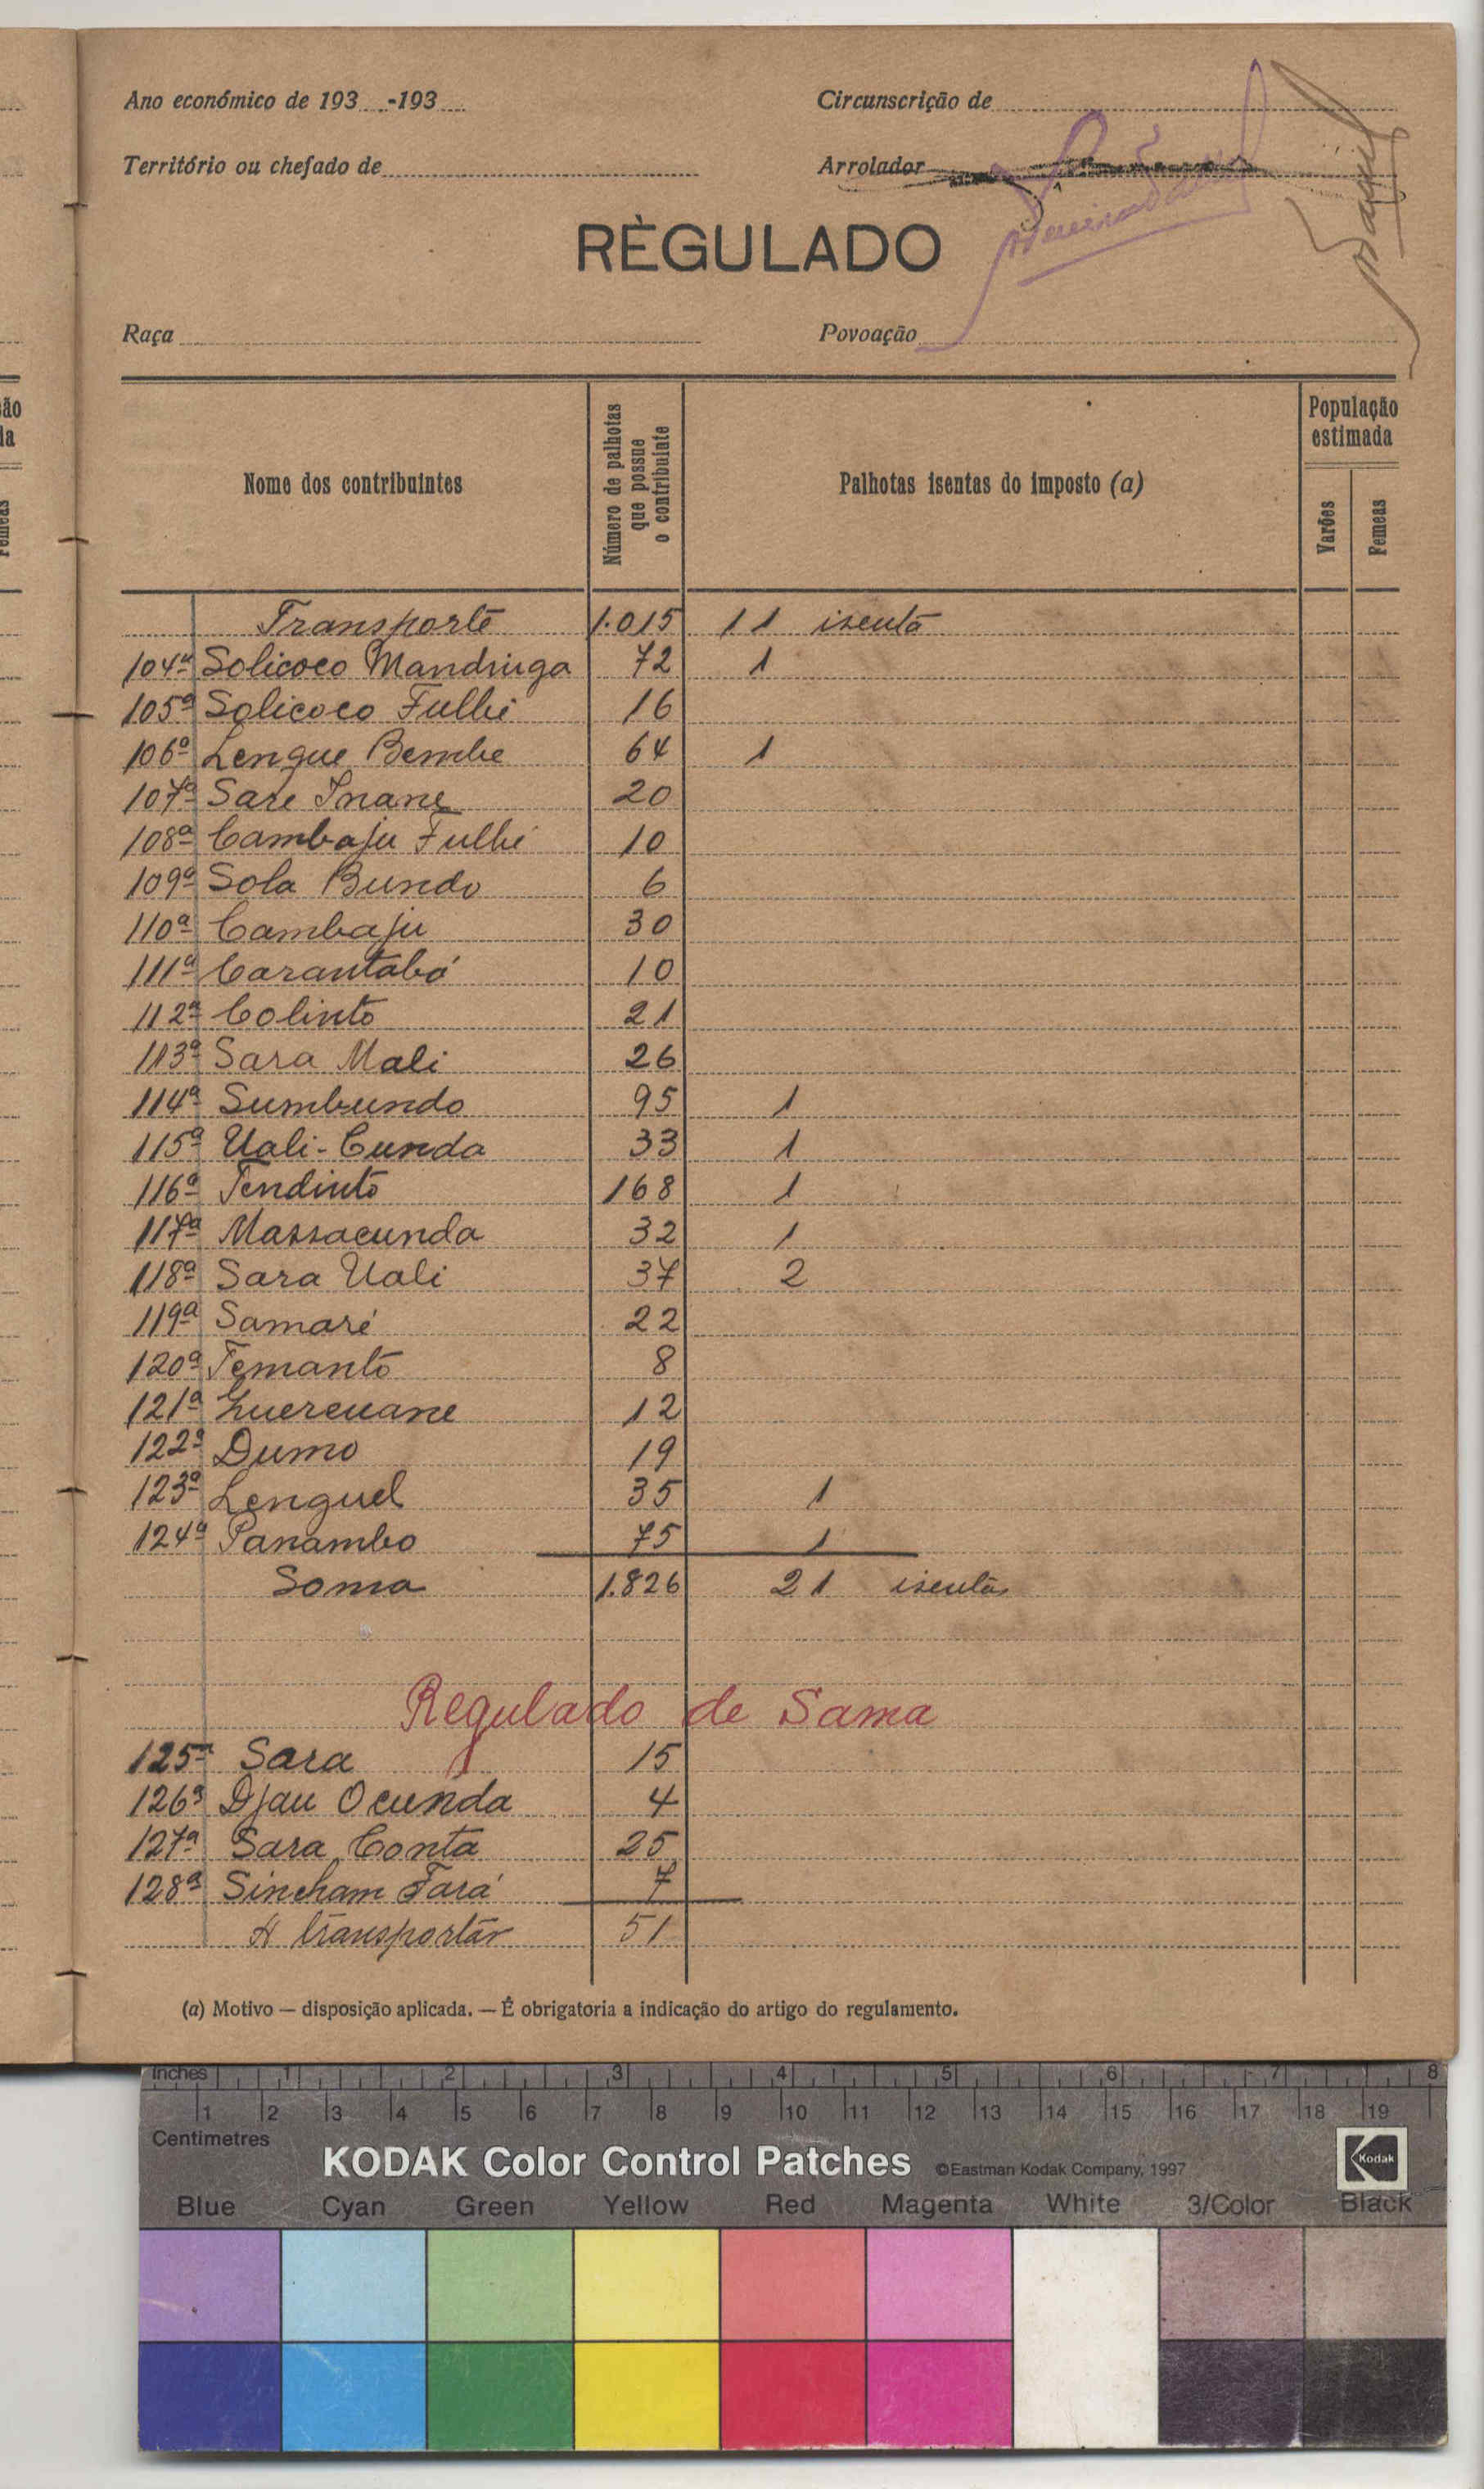 Ano económico de 193 -193
Circunscrição de
Território ou chefado de
Arrolador
RÈGULADO
Raça
Povoação
Nome dos contribuintes
Número de palhotas que possue o contribuinte
Palhotas isentas do imposto (a)
População estimada
Varões
Femeas
Transporte 1.015 11 isenta
104ª Solicoco Mandinga 72 1
105ª Solicoco Fulbi 16
106ª Lengue Bembe 64 1
107ª Sare Inane 20
108ª Cambaju Fulbi 10
109ª Sola Bundo 6
110ª Cambaju 30
111ª Carantabá 10
112ª Colinto 21
113ª Sara Mali 26
114ª Sumbundo 95 1
115ª Uali-Cunda 33 1
116ª Tendinto 168 1
117ª Massacunda 32 1
118ª Sara Uali 37 2
119ª Samaré 22
120ª Temanto 8
121ª Guereuane 12
122ª Dumo 19
123ª Lenguel 35 1
124ª Panambo 75 1
Soma 1.826 21 isentas
Regulado de Sama
125ª Sara 15
126ª Djau Ocunda 4
127ª Sara Conta 25
128ª Sincham Fará 7
A transportar 51
(a) Motivo — disposição aplicada. — É obrigatoria a indicação do artigo do regulamento.
Inches 1 2 3 4 5 6 7 8
1 2 3 4 5 6 7 8 9 10 11 12 13 14 15 16 17 18 19
Centimetres
KODAK Color Control Patches ©Eastman Kodak Company, 1997 Kodak
Blue Cyan Green Yellow Red Magenta White 3/Color Black